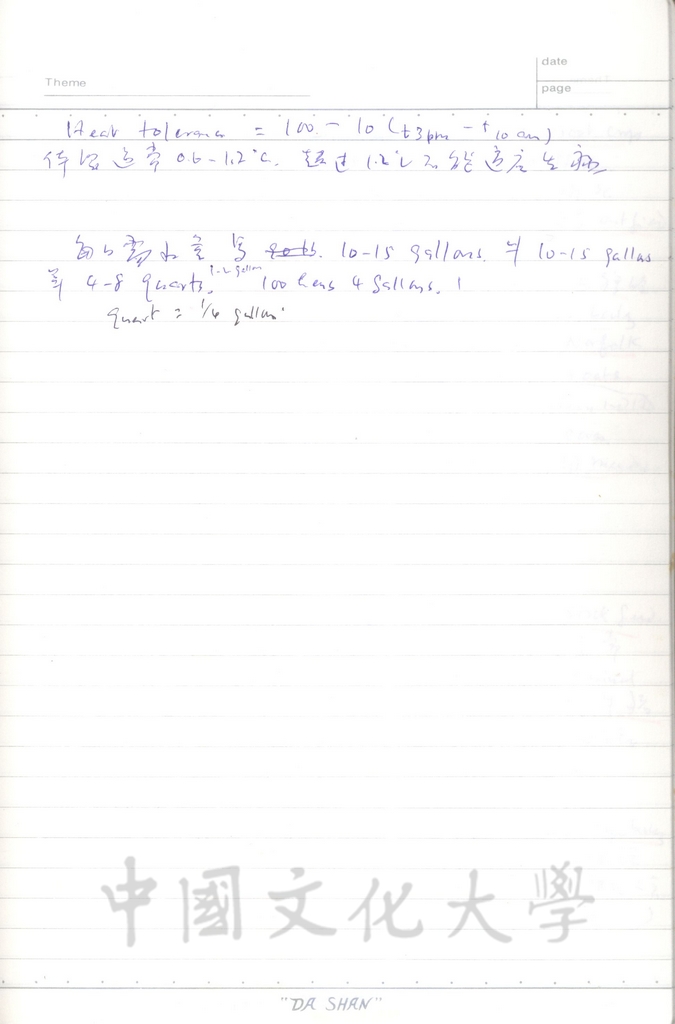 date
Theme
page
Heat tolerance = 100 - 10 (t3pm - t10am)
体温通常 0.6-1.2°C. 超过 1.2°C 不能适应生病
每日需水量 马 10-15 gallons. 牛 10-15 gallons
羊 4-8 quarts, 1-2 gallon 100 hens 4 gallons.
quart = 1/4 gallon
中國文化大學
"DA SHAN"